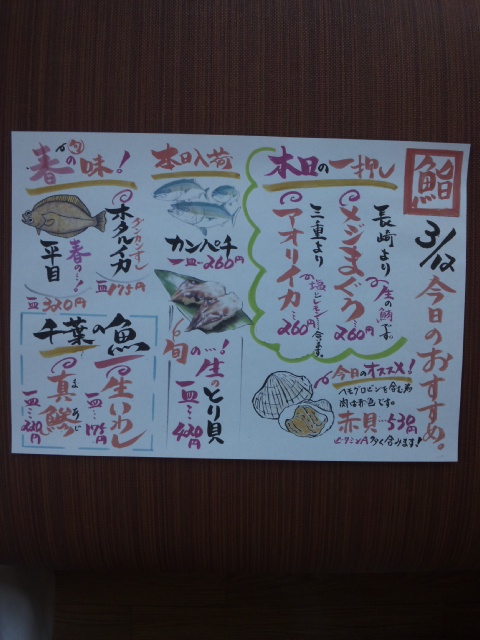 鮨
3/12 今日のおすすめ。
本日の一押し
長崎より
メジまぐろ
生の鮪です。
260円
三重より
アオリイカ
塩とレモンで合います。
260円
今日のオススメ!
ヘモグロビンを含む為
肉は赤色です。
赤貝…530円
ビタミンA多く含みます!
本日入荷
カンパチ
一皿…260円
旬の…!
生とり貝
一皿…400円
春の味!
旬
ホタルイカ
グンカンすし
一皿175円
春の…!
平目
一皿320円
千葉の魚
生いわし
一皿…175円
真鯵
まあじ